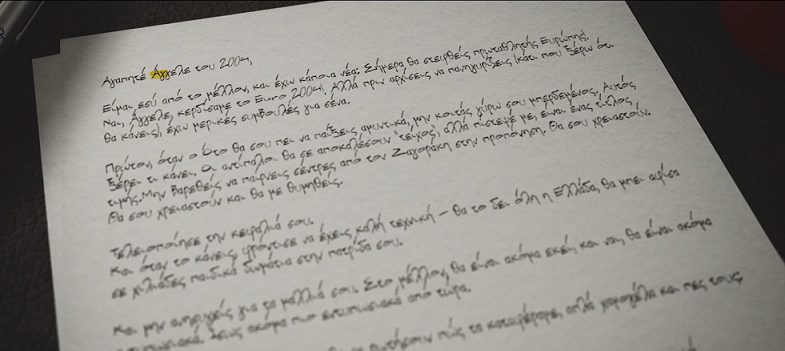 Αγαπητέ Άγγελε του 2004,
Είμαι εσύ από το μέλλον, και έχω κάποια νέα: Σήμερα θα στεφθείς πρωταθλητής Ευρώπης!
Ναι, Άγγελε, κερδίσαμε το Euro 2004! Αλλά πριν αρχίσεις να πανηγυρίζεις (κάτι που ξέρω ότι
θα κάνεις), έχω μερικές συμβουλές για σένα.
Πρώτον, όταν ο Ότο θα σου πει να παίξεις αμυντικά, μην κοιτάς γύρω σου μπερδεμένος. Αυτός
ξέρει τι κάνει. Οι αντίπαλοι θα σε αποκαλέσουν "τείχος, αλλά πίστεψέ με, είναι ένας τίτλος
τιμής. Μην βαρεθείς να παίρνεις σέντρες από τον Ζαγοράκη στην προπόνηση. Θα σου χρειαστούν.
Θα σου χρειαστούν και θα με θυμηθείς.
Τελειοποίησε την κεφαλιά σου.
Και όταν το κάνεις, φρόντισε να έχεις καλή τεχνική – θα το δει όλη η Ελλάδα, θα μπει αφίσα
σε χιλιάδες παιδικά δωμάτια στην πατρίδα σου.
Και μην ανησυχείς για τα μαλλιά σου. Στο μέλλον, θα είναι ακόμα εκεί, και ναι, θα είναι ακόμα
ακόμα πιο εντυπωσιακά από τώρα.
πώς τα καταφέραμε, απλά χαμογέλα και πες τους